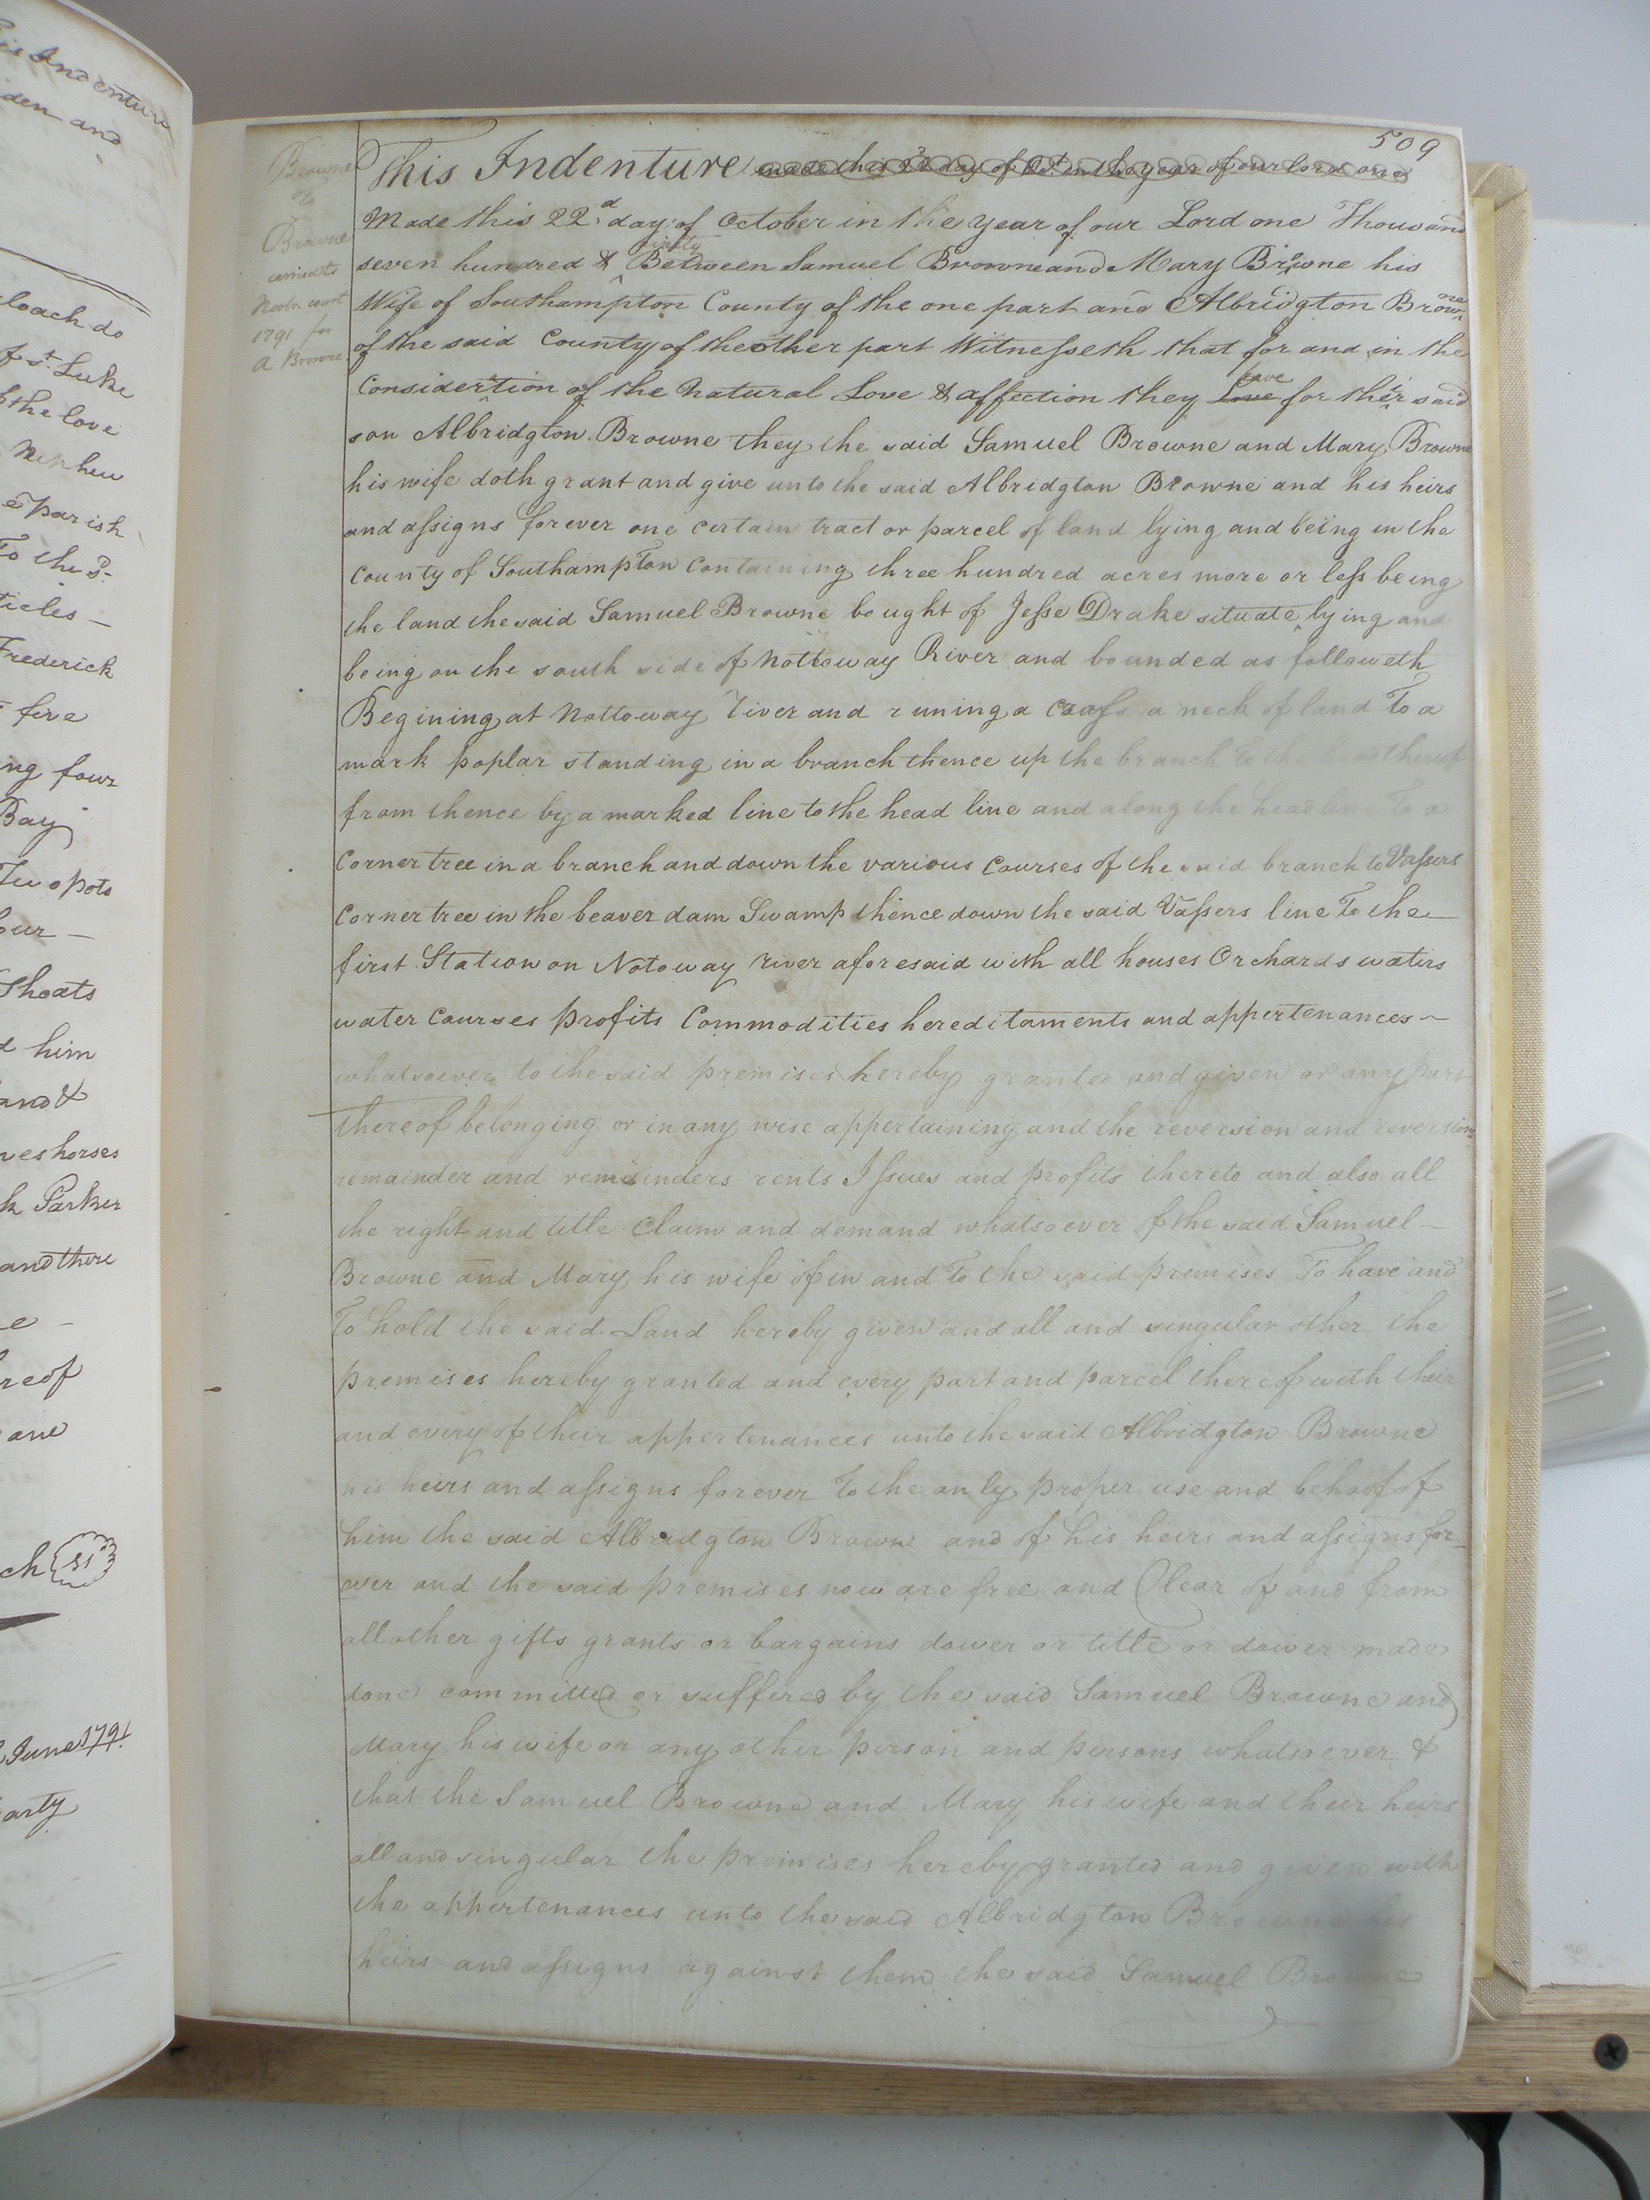 is Indenture
den and
loach do
of St. Luke
the love
Nephew
e parish
To the sd-
ticles —
Frederick
five
ng four
Bay
Two pots
our —
Shoats
d him
and &
ves horses
k Parker
and there
e -
reof
one
ch
June 1791
arty
509
Browne
to
Browne
carried to
Novbr. court
1791 for
A Browne
This Indenture made this 22 day of Oct. in the year of our lord one
Made this 22d. day of October in the year of our Lord one Thousand
seven hundred & ninety Between Samuel Browne and Mary Browne his
Wife of Southampton County of the one part and Albridgton Browne
of the said County of the other part Witnesseth that for and in the
Consideration of the Natural Love & affection they Love have for their said
son Albridgton Browne they the said Samuel Browne and Mary Browne
his wife doth grant and give unto the said Albridgton Browne and his heirs
and assigns forever one certain tract or parcel of land lying and being in the
County of Southampton Containing three hundred acres more or less being
the land the said Samuel Browne bought of Jesse Drake situate lying and
being on the south side of Nottoway River and bounded as followeth
Begining at Nottoway River and runing a Cross a neck of land To a
mark poplar standing in a branch thence up the branch To the thereof
from thence by a marked line to the head line and along the head line To a
Corner tree in a branch and down the various Courses of the said branch to Vassers
Corner tree in the beaver dam Swamp thence down the said Vassers line To the
first Station on Notoway River aforesaid with all houses Orchards waters
water Courses profits Commodities hereditaments and appertenances —
whatsoever to the said premises hereby granted and given or any part
thereof belonging or in any wise appertaining and the reversion and reversions
remainder and remainders rents Issues and profits thereto and also all
the right and title Claim and demand whatsoever of the said Samuel —
Browne and Mary his wife of in and To the said premises To have and
To hold the said Land hereby given and all and singular other the
premises hereby granted and every part and parcel thereof with their
and every of their appertenances unto the said Albridgton Browne
his heirs and assigns forever To the only proper use and behoof of
him the said Albridgton Brown and of his heirs and assigns for-
ever and the said premises now are free and Clear of and from
all other gifts grants or bargains dower or title or dower made
done committed or suffered by the said Samuel Browne and
Mary his wife or any other person and persons whatsoever &
that the Samuel Browne and Mary his wife and their heirs
all and singular the premises hereby granted and given with
the appertenances unto the said Albridgton Browne his
heirs and assigns against them the said Samuel Browne